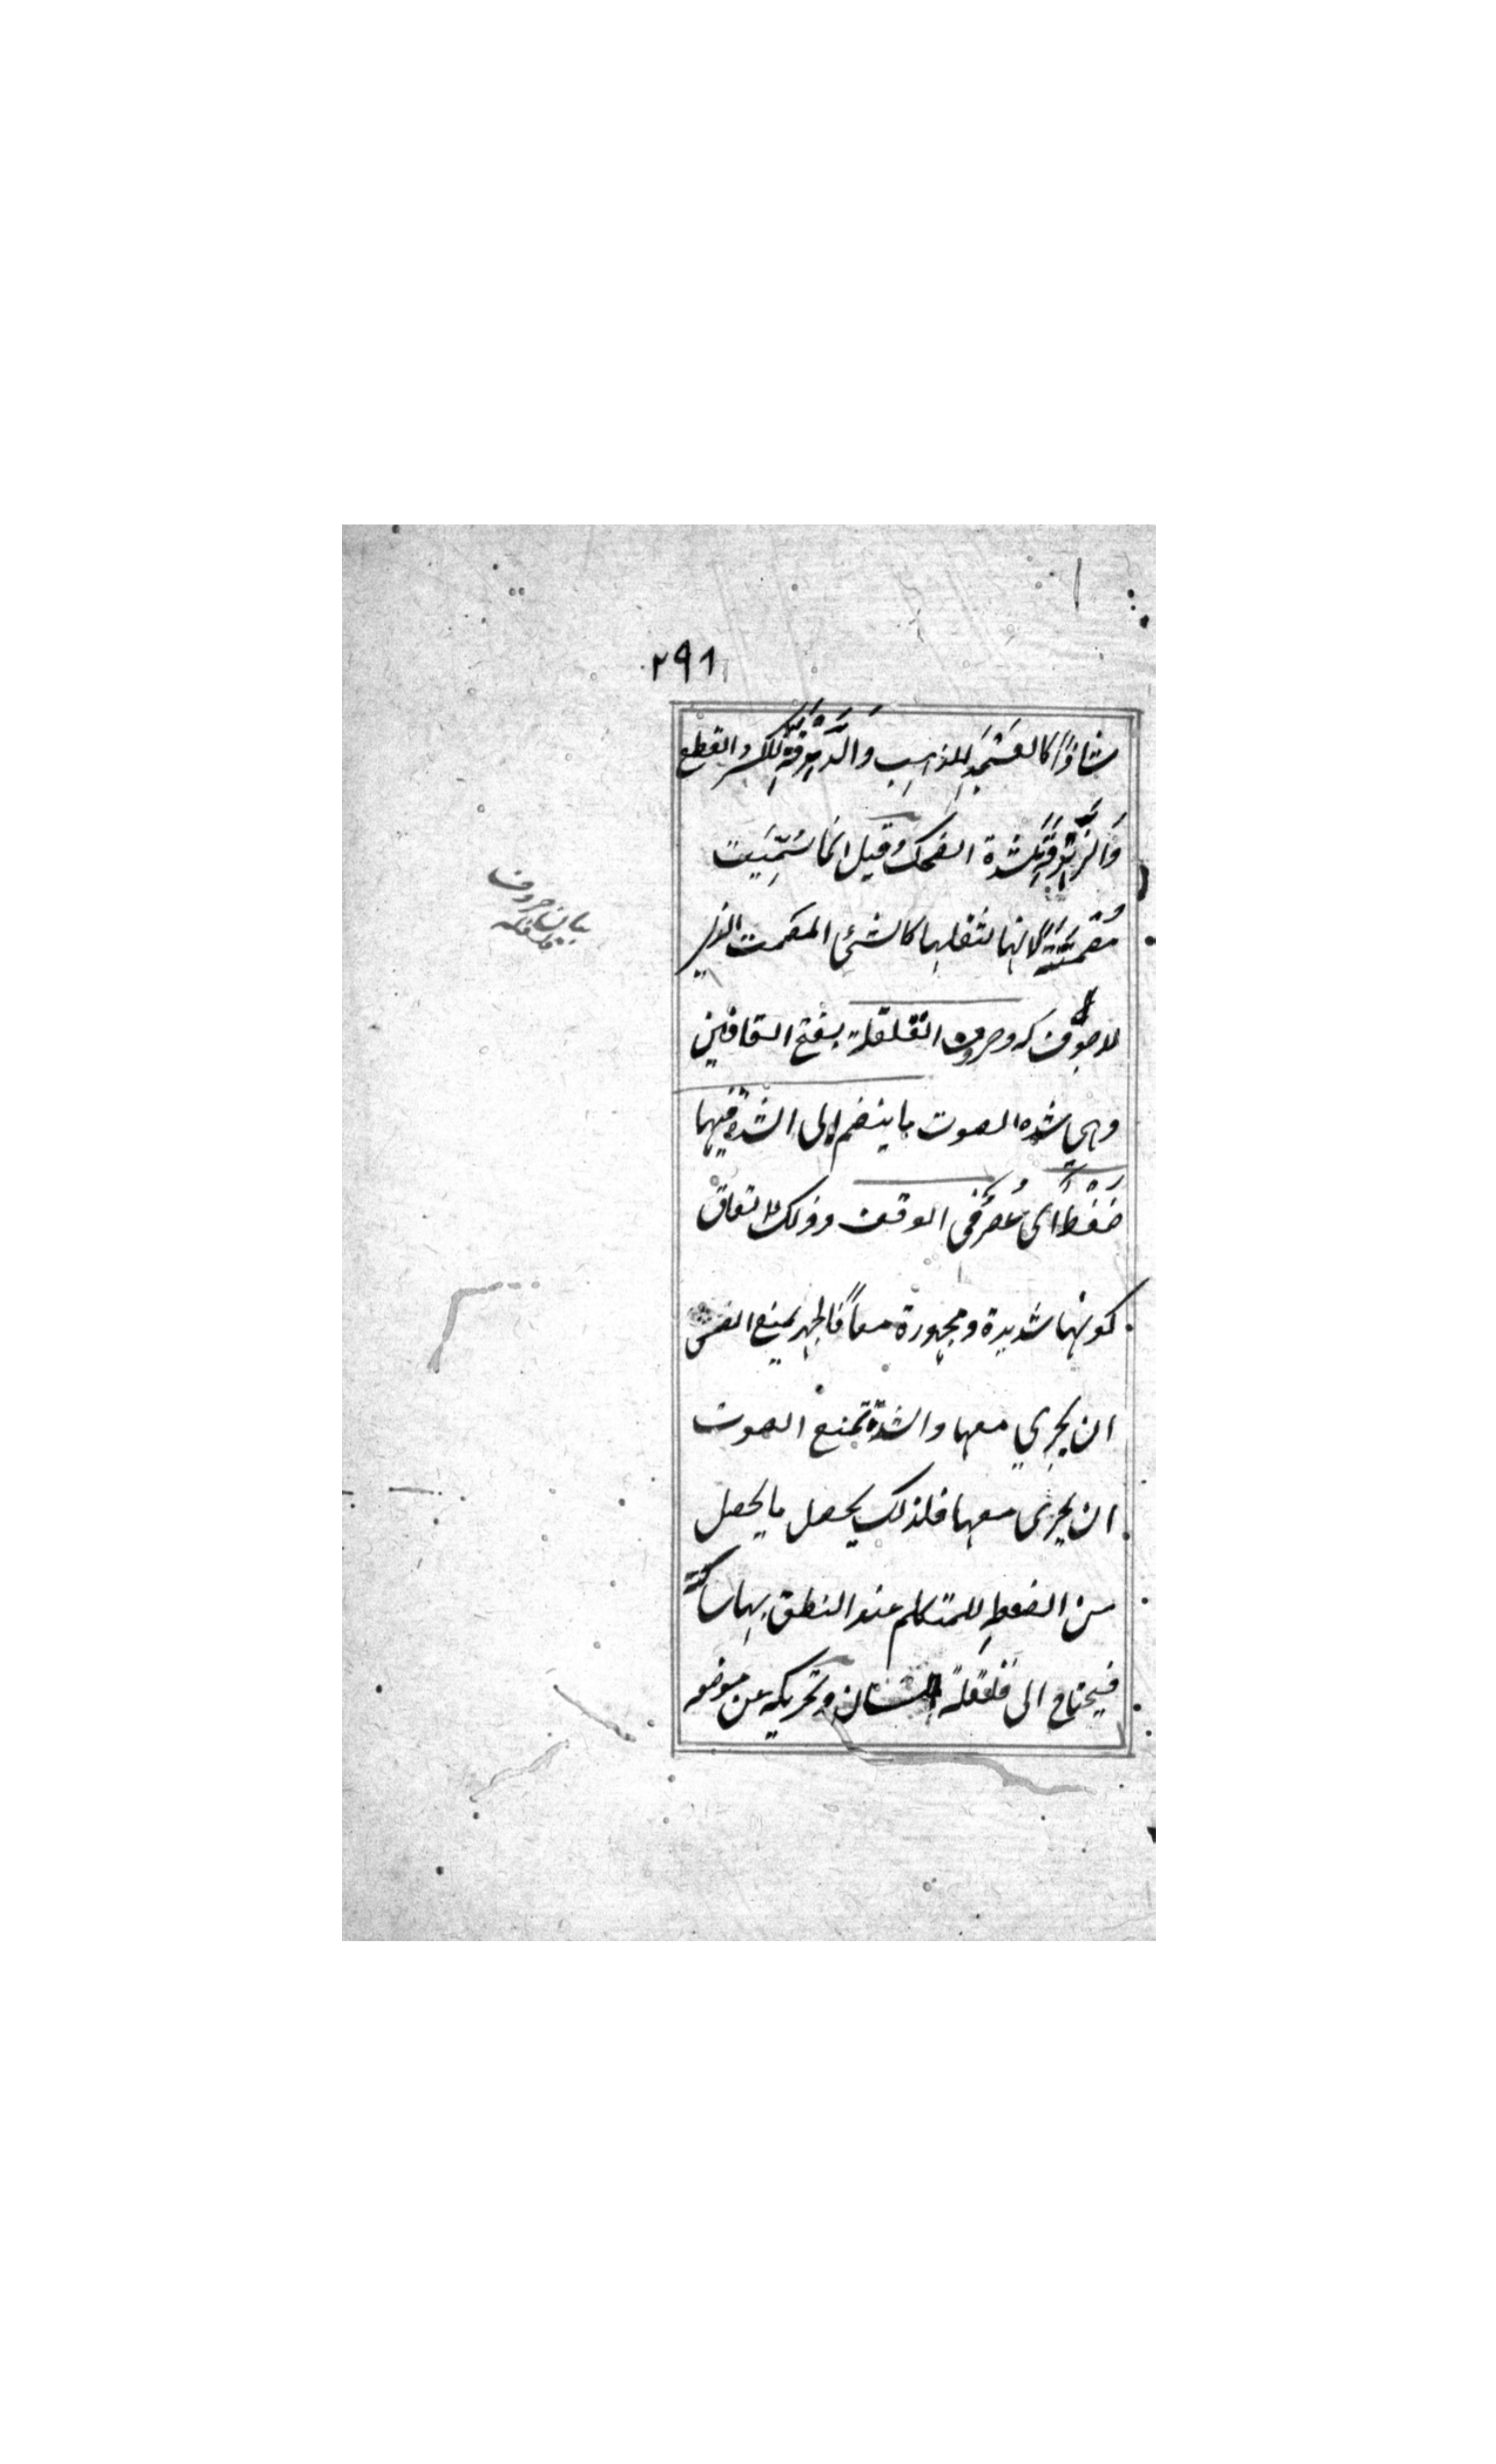 ٢٩١
شاذًا كالعَسْجَدِ للذهب والدَّهْدَقَةِ للكسر والقطع
وَالزَّهْزَقَةِ لشدة الضحك وقيل انما سُمِّيَت
مُصْمَتَةً لانها لثقلها كالشئ المصمت الذى
لا جوف له وحروف القلقلة بفتح القافين
وهي شدة الصوت ما ينضم الى الشدة فيها
ضَغْطٌ اى عُصْرٌ فى الوقف وذلك لاتفاق
كونها شديدة ومجهورة معاً فالجهر يمنع النفس
ان يجري معها والشدة تمنع الصوت
ان يجرى معها فلذلك يحصل ما يحصل
من الضغط للمتكلم عند النطق بها ساكنة
فيحتاج الى قلقلة اللسان وتحريكه عن موضعه
بيان حروف
قلقله